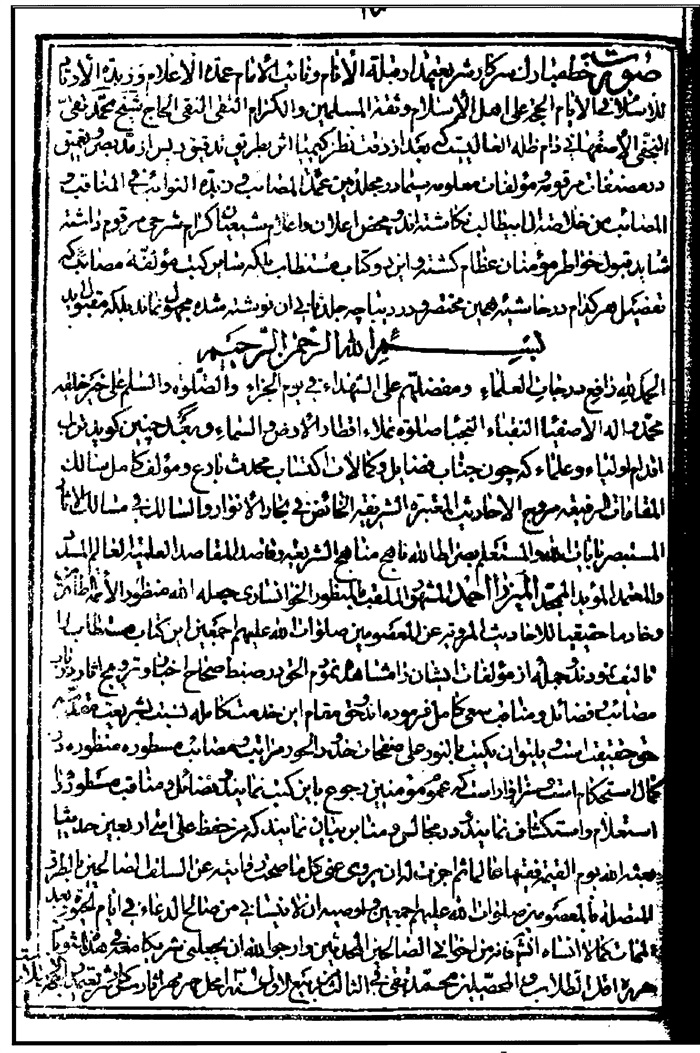 صورت خط مبارک سرکار شریعتمدار قبلة الأنام و نائب الامام عمدة الاعلام و زبدة
الاسلام حجة علی اهل الاسلام و ثقة المسلمین و الکرام التقی النقی الحاج شیخ محمد تقی
النجفی الاصفهانی دام ظله العالی که بعد از دقت نظر کیمیا اثر بطریق تدقیق پس از مد بصر و تعمیق
در مصنفات مرقومه و مؤلفات معلومه سیما در مجلدین عمدة المصائب و زبدة النوائب فی المناقب و
المصائب من خلاصة المطالب نگاشته اند و محض اعلان و اعلام شیعیان کرام شرحی مرقوم داشته
شاید قبول خواطر مؤمنان عظام گشته و این دو کتاب مستطاب بلکه سایر کتب مؤلفهٔ مصائب که
تفصیل هر کدام در حاشیهٔ همین مختصر و در دیباچه جلد ثانی ان نوشته شده مجهول نماند بلکه مقبول اید
بسم الله الرحمن الرحیم
الحمد لله رافع درجات العلماء و مفضلهم علی الشهداء فی یوم الجزاء و الصلوة و السلم علی خیر خلقه
محمد و اله الاصفیا النقباء النجبا صلوة تملاء اقطار الارض و السماء و بعد چنین گوید تراب
اقدام اولیاء و علماء که چون جناب فضایل و کمالات اکتساب محدث بارع و مؤلف کامل سالک
المقامات الرفیعه مروج الاحادیث المعتبرة الشریفه الخائض فی بحار الانوار و السالک فی مسالک
المستبصر بایات الله و المستعلم بصراط الله ناهج مناهج الشریعه و قاصد المقاصد العلمیة العالم
و المعتمد المؤید الممجد المیرزا احمد المشهور الملقب بالمنظور الخوانساری جعله الله منظور الأئمة
و خادما حقیقیا للاحادیث المرویة عن المعصومین صلوات الله علیهم اجمعین این کتاب مستطاب را
تالیف و در جمله از مؤلفات ایشان را مشاهده نمودم الحق در ضبط صحاح اخبار و ترویج اثار در باب
مصائب و فضائل و مناقب سعی کامل فرموده اند و حق مقام این خدمت کامله نسبت بشریعت
حق حقیقت است و بایتوان یکتب بالنور علی صفحات خدود الحور مراتب و مصائب مسطوره منظوره در
کمال استحکام است و سزاوار است که عموم مؤمنین رجوع باین کتب نمایند و فضائل و مناقب مسطوره را
استعلام و استکشاف نمایند و در مجالس و منابر بیان نمایند که من حفظ علی امتی اربعین حدیثا
بعثه الله یوم القیمة فقیها عالما ثم اجزت له ان یروی عنی کل ما صحت روایته عن السلف الصالحین بالطرق
المتصلة بالمعصومین صلوات الله علیهم اجمعین و اوصیه ان لا ینسانی من صالح الدعاء فی ایام الحیوة و بعد
الممات کما لا انساه انشاء من اخوانی الصالحین المحدثین و ارجو الله ان یجعلنی شریکا معه فی هذا
حرره اقل الطلاب و المحصلین محمد تقی فی الثالث من ربیع الاول محل مهر